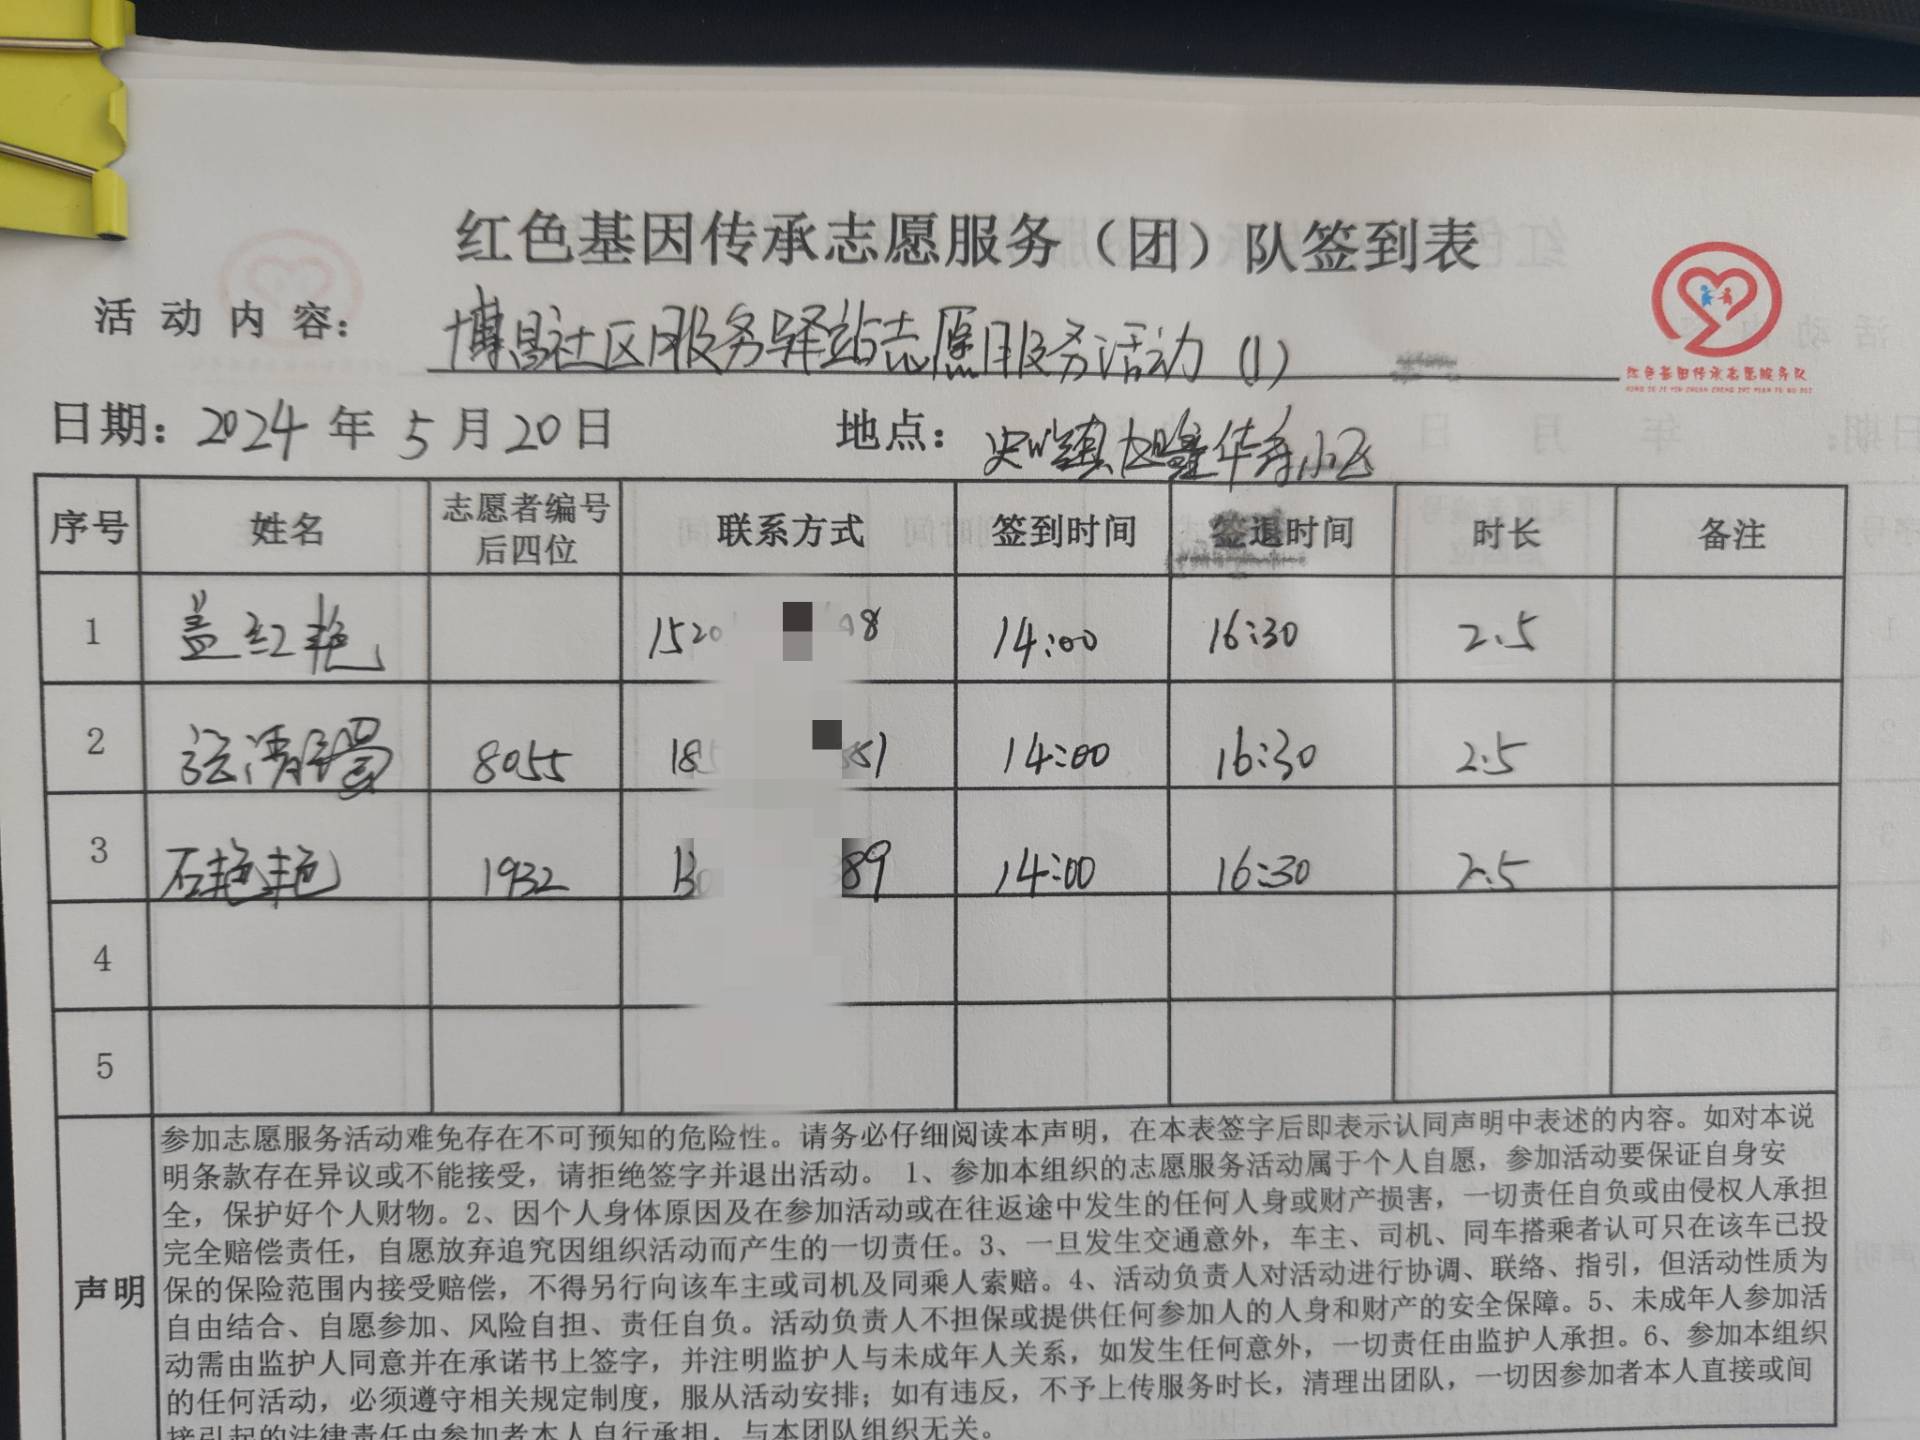 红色基因传承志愿服务（团）队签到表
活动内容： 博昌社区服务驿站志愿服务活动（1）
红色基因传承志愿服务队
日期：2024年5月20日 地点： 小区
序号 姓名 志愿者编号后四位 联系方式 签到时间 签退时间 时长 备注
1 盖红艳 1520 8 14:00 16:30 2.5
2 8055 18 51 14:00 16:30 2.5
3 石艳艳 1932 13 89 14:00 16:30 2.5
4
5
声明
参加志愿服务活动难免存在不可预知的危险性。请务必仔细阅读本声明，在本表签字后即表示认同声明中表述的内容。如对本说
明条款存在异议或不能接受，请拒绝签字并退出活动。 1、参加本组织的志愿服务活动属于个人自愿，参加活动要保证自身安
全，保护好个人财物。2、因个人身体原因及在参加活动或在往返途中发生的任何人身或财产损害，一切责任自负或由侵权人承担
完全赔偿责任，自愿放弃追究因组织活动而产生的一切责任。3、一旦发生交通意外，车主、司机、同车搭乘者认可只在该车已投
保的保险范围内接受赔偿，不得另行向该车主或司机及同乘人索赔。4、活动负责人对活动进行协调、联络、指引，但活动性质为
自由结合、自愿参加、风险自担、责任自负。活动负责人不担保或提供任何参加人的人身和财产的安全保障。5、未成年人参加活
动需由监护人同意并在承诺书上签字，并注明监护人与未成年人关系，如发生任何意外，一切责任由监护人承担。6、参加本组织
的任何活动，必须遵守相关规定制度，服从活动安排；如有违反，不予上传服务时长，清理出团队，一切因参加者本人直接或间
接引起的法律责任由参加者本人自行承担，与本团队组织无关。